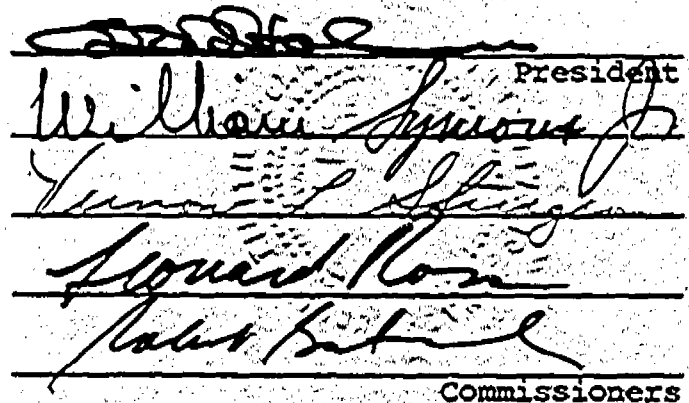 President
William Symons Jr
Vernon L Sturgeon
Leonard Ross
Robert
Commissioners